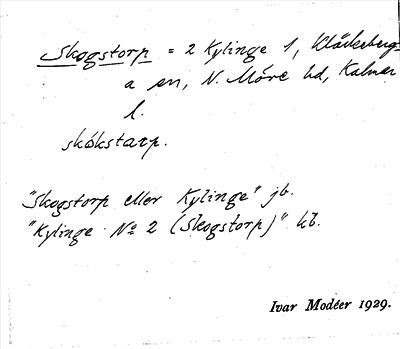 Skogstorp = 2 Kylinge 1, Kläckeberg-
a sn, N. Möre hd, Kalmar
l.
skókstarp.
"Skogstorp eller Kylinge" jb.
"Kylinge No 2 (Skogstorp)" kb.
Ivar Modéer 1929.